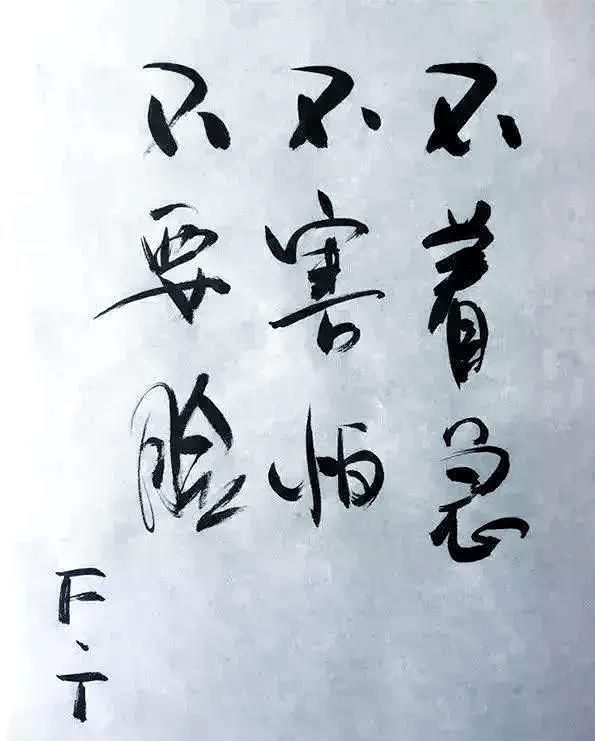 不着急
不害怕
不要脸
F、T